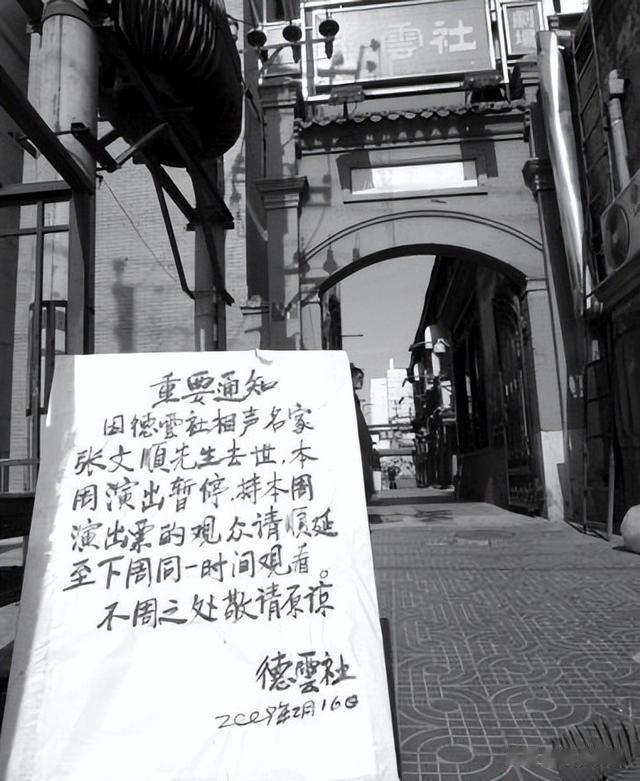 雲社
劇場
重要通知
因德雲社相声名家
张文順先生去世,本
周演出暂停.持本周
演出票的观众请顺延
至下周同一时间观看。
不周之处敬请原谅
德雲社
2009年2月16日